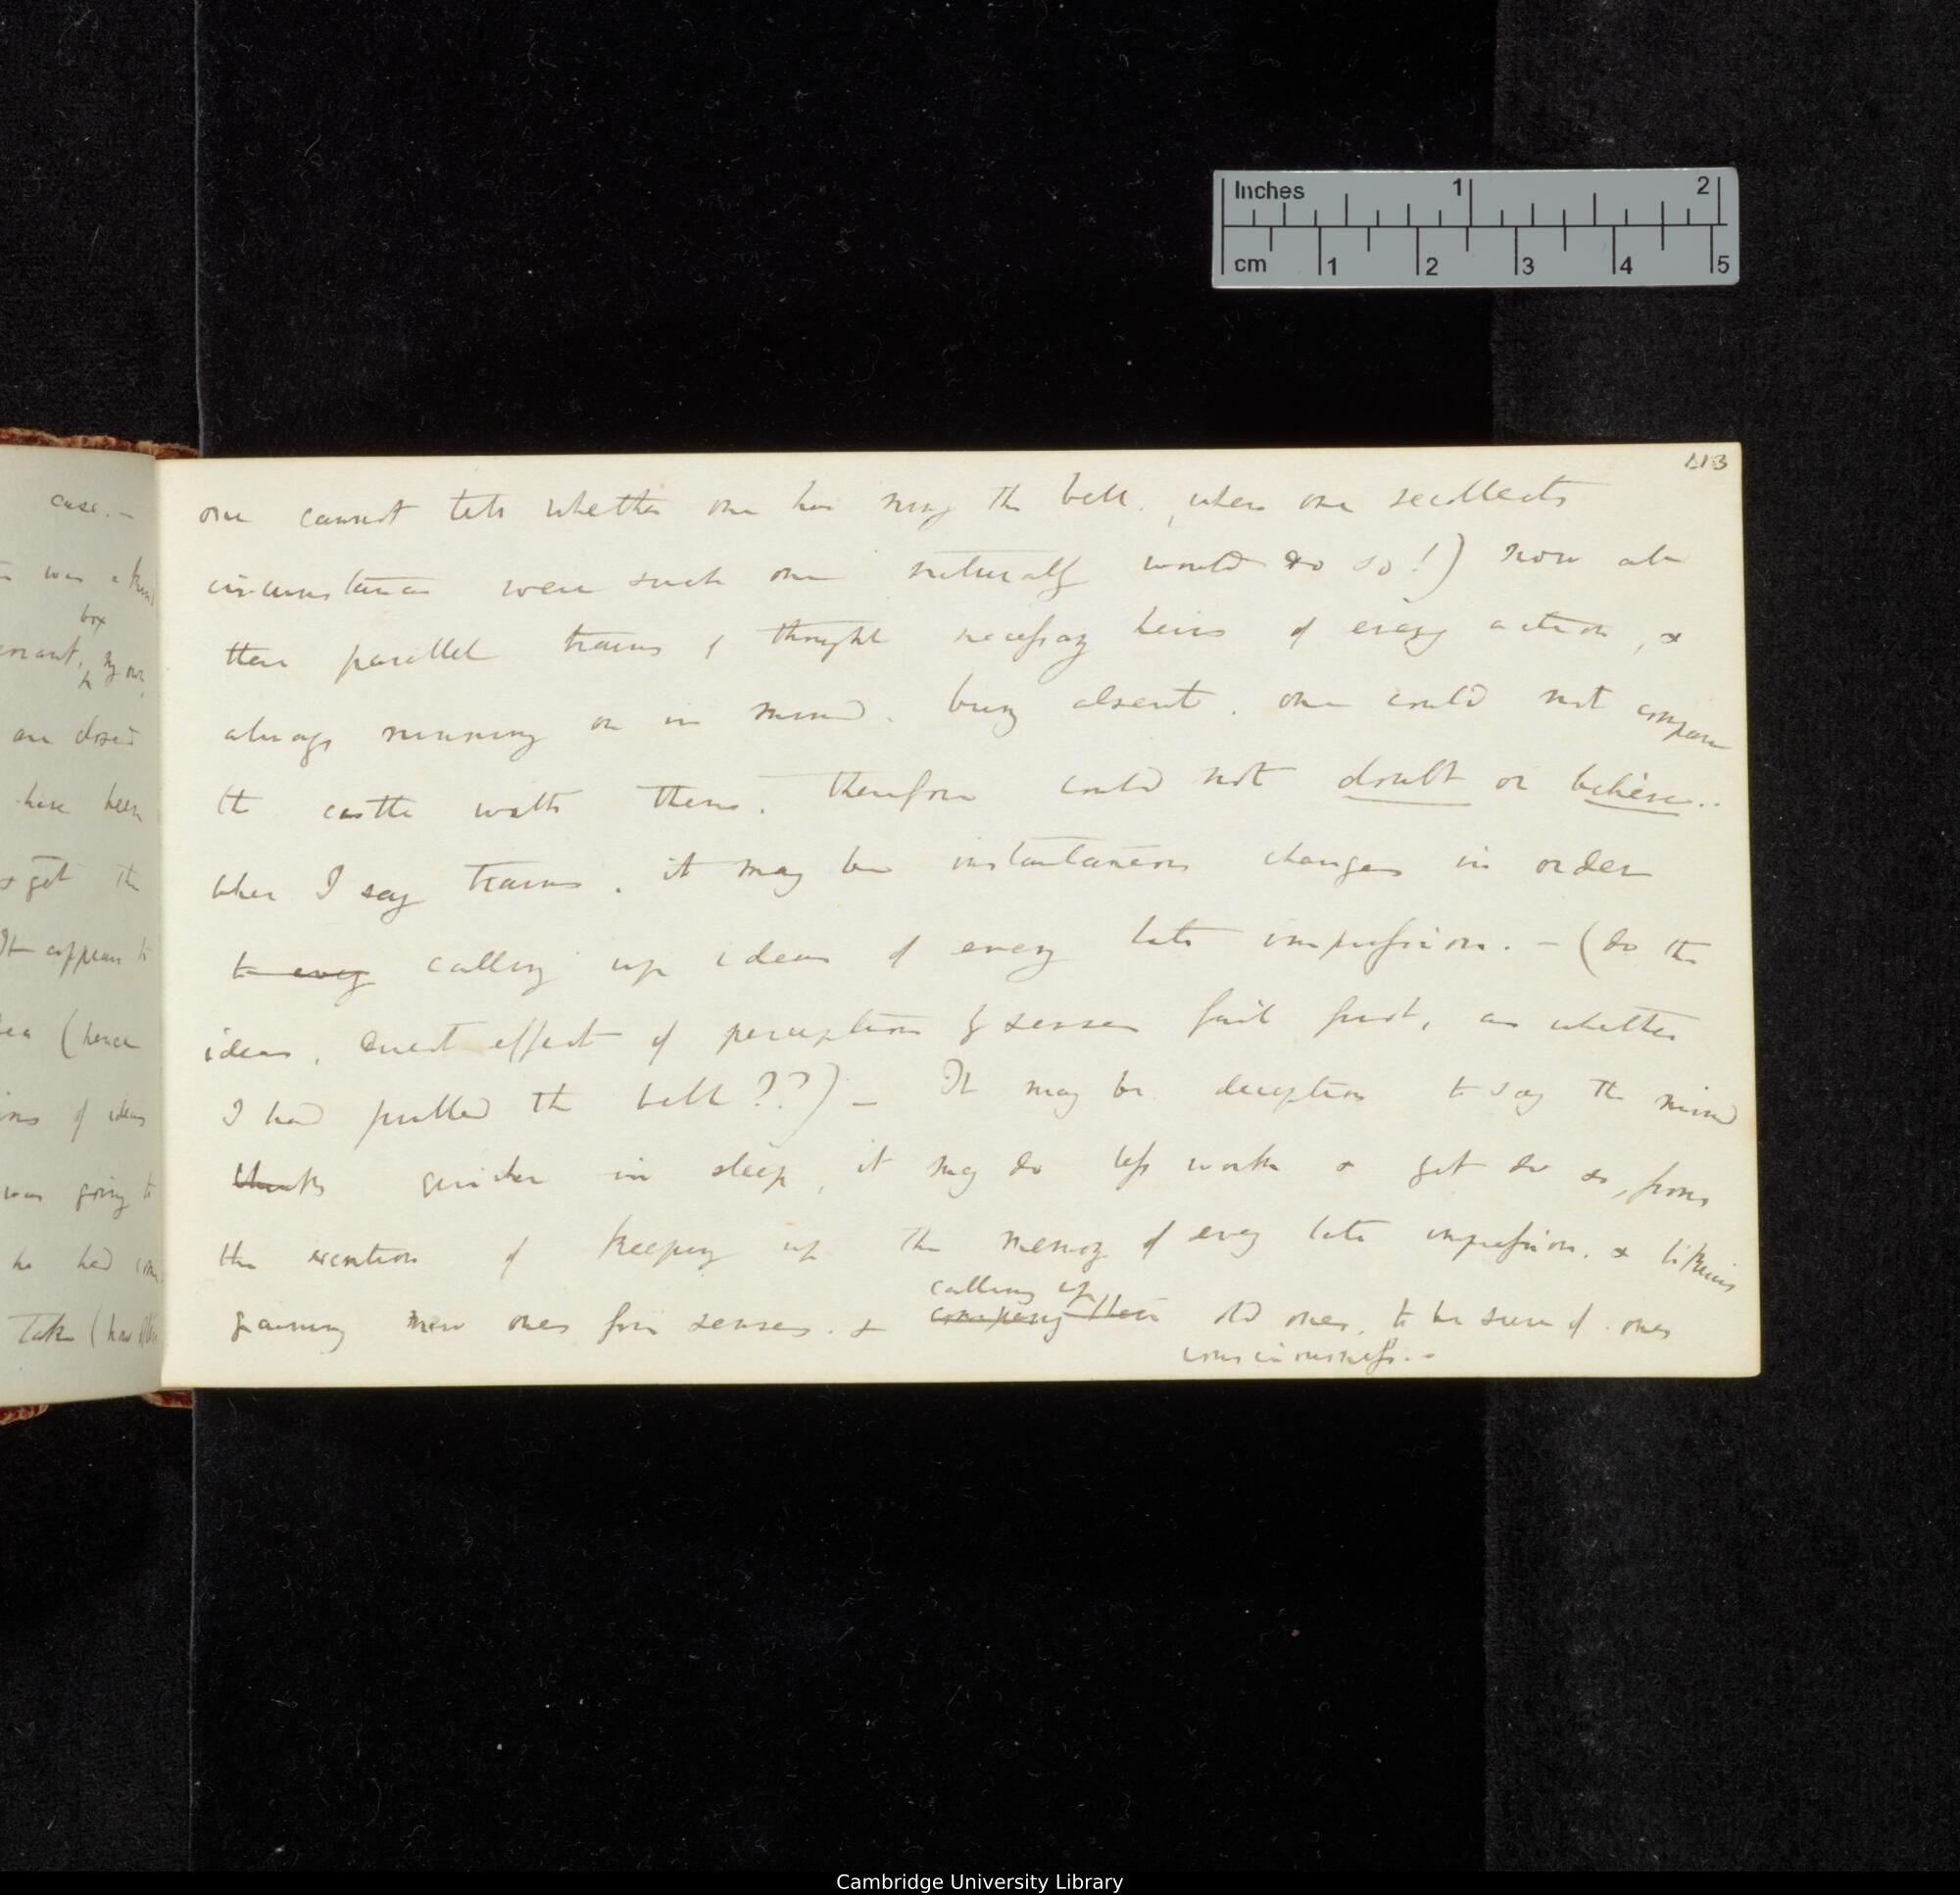 Inches 1 2
cm 1 2 3 4 5
113
case. —
was a
box
are closed
have been
& get the
It appears to
(hence
of ideas
was going to
he had
Take (has
one cannot tell whether one has rung the bell, when one recollects
circumstances were such one naturally would do so!) now all
these parallel trains of thought necessary heirs of every action, &
always running on in mind. being absent. one could not compare
the castle with them. therefore could not doubt or believe..
When I say trains. it may be instantaneous changes in order
to every calling up ideas of every late impression. — (do the
ideas, direct effect of perception of senses fail first, as whether
I had pulled the bell??) — It may be deception to say the mind
thinks quicker in sleep, it may do less work & yet do so, from
the exertion of keeping up the memory of every late impression. &
gaining new ones from senses. & comparing them old ones. to be sure of ones
calling up
consciousness. —
Cambridge University Library